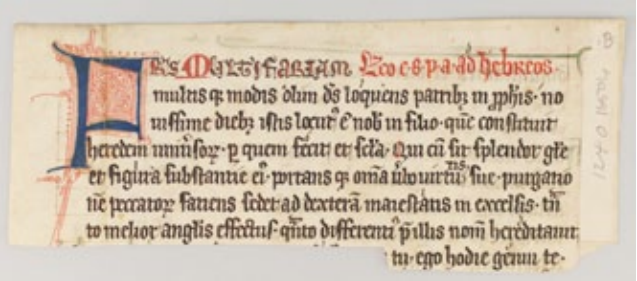 FRS MULTIFARIAM Lco e. b. p. a. ad hebreos.
multis qꝫ modis olim d̄s loquens patribꝫ in ꝓph̄is. no
uissime diebꝫ istis locutꝰ ē nob̄ in filio. quē constituit
heredem uniu̅soꝝ. ꝑ quem fecit et sc̄la. Qui cū sit splendor gl̄e
et figura substantie eiꝰ. portans qꝫ om̄ia u̅bo uirtu̅ sue. purgatio
nē peccatoꝝ faciens sedet ad dexterā maiestatis in excelsis. tn̄
to melior angl̄is effectus. qn̄to differentiꝰ p̄ illis nom̄ hereditauit
tu. ego hodie genui te.
1240